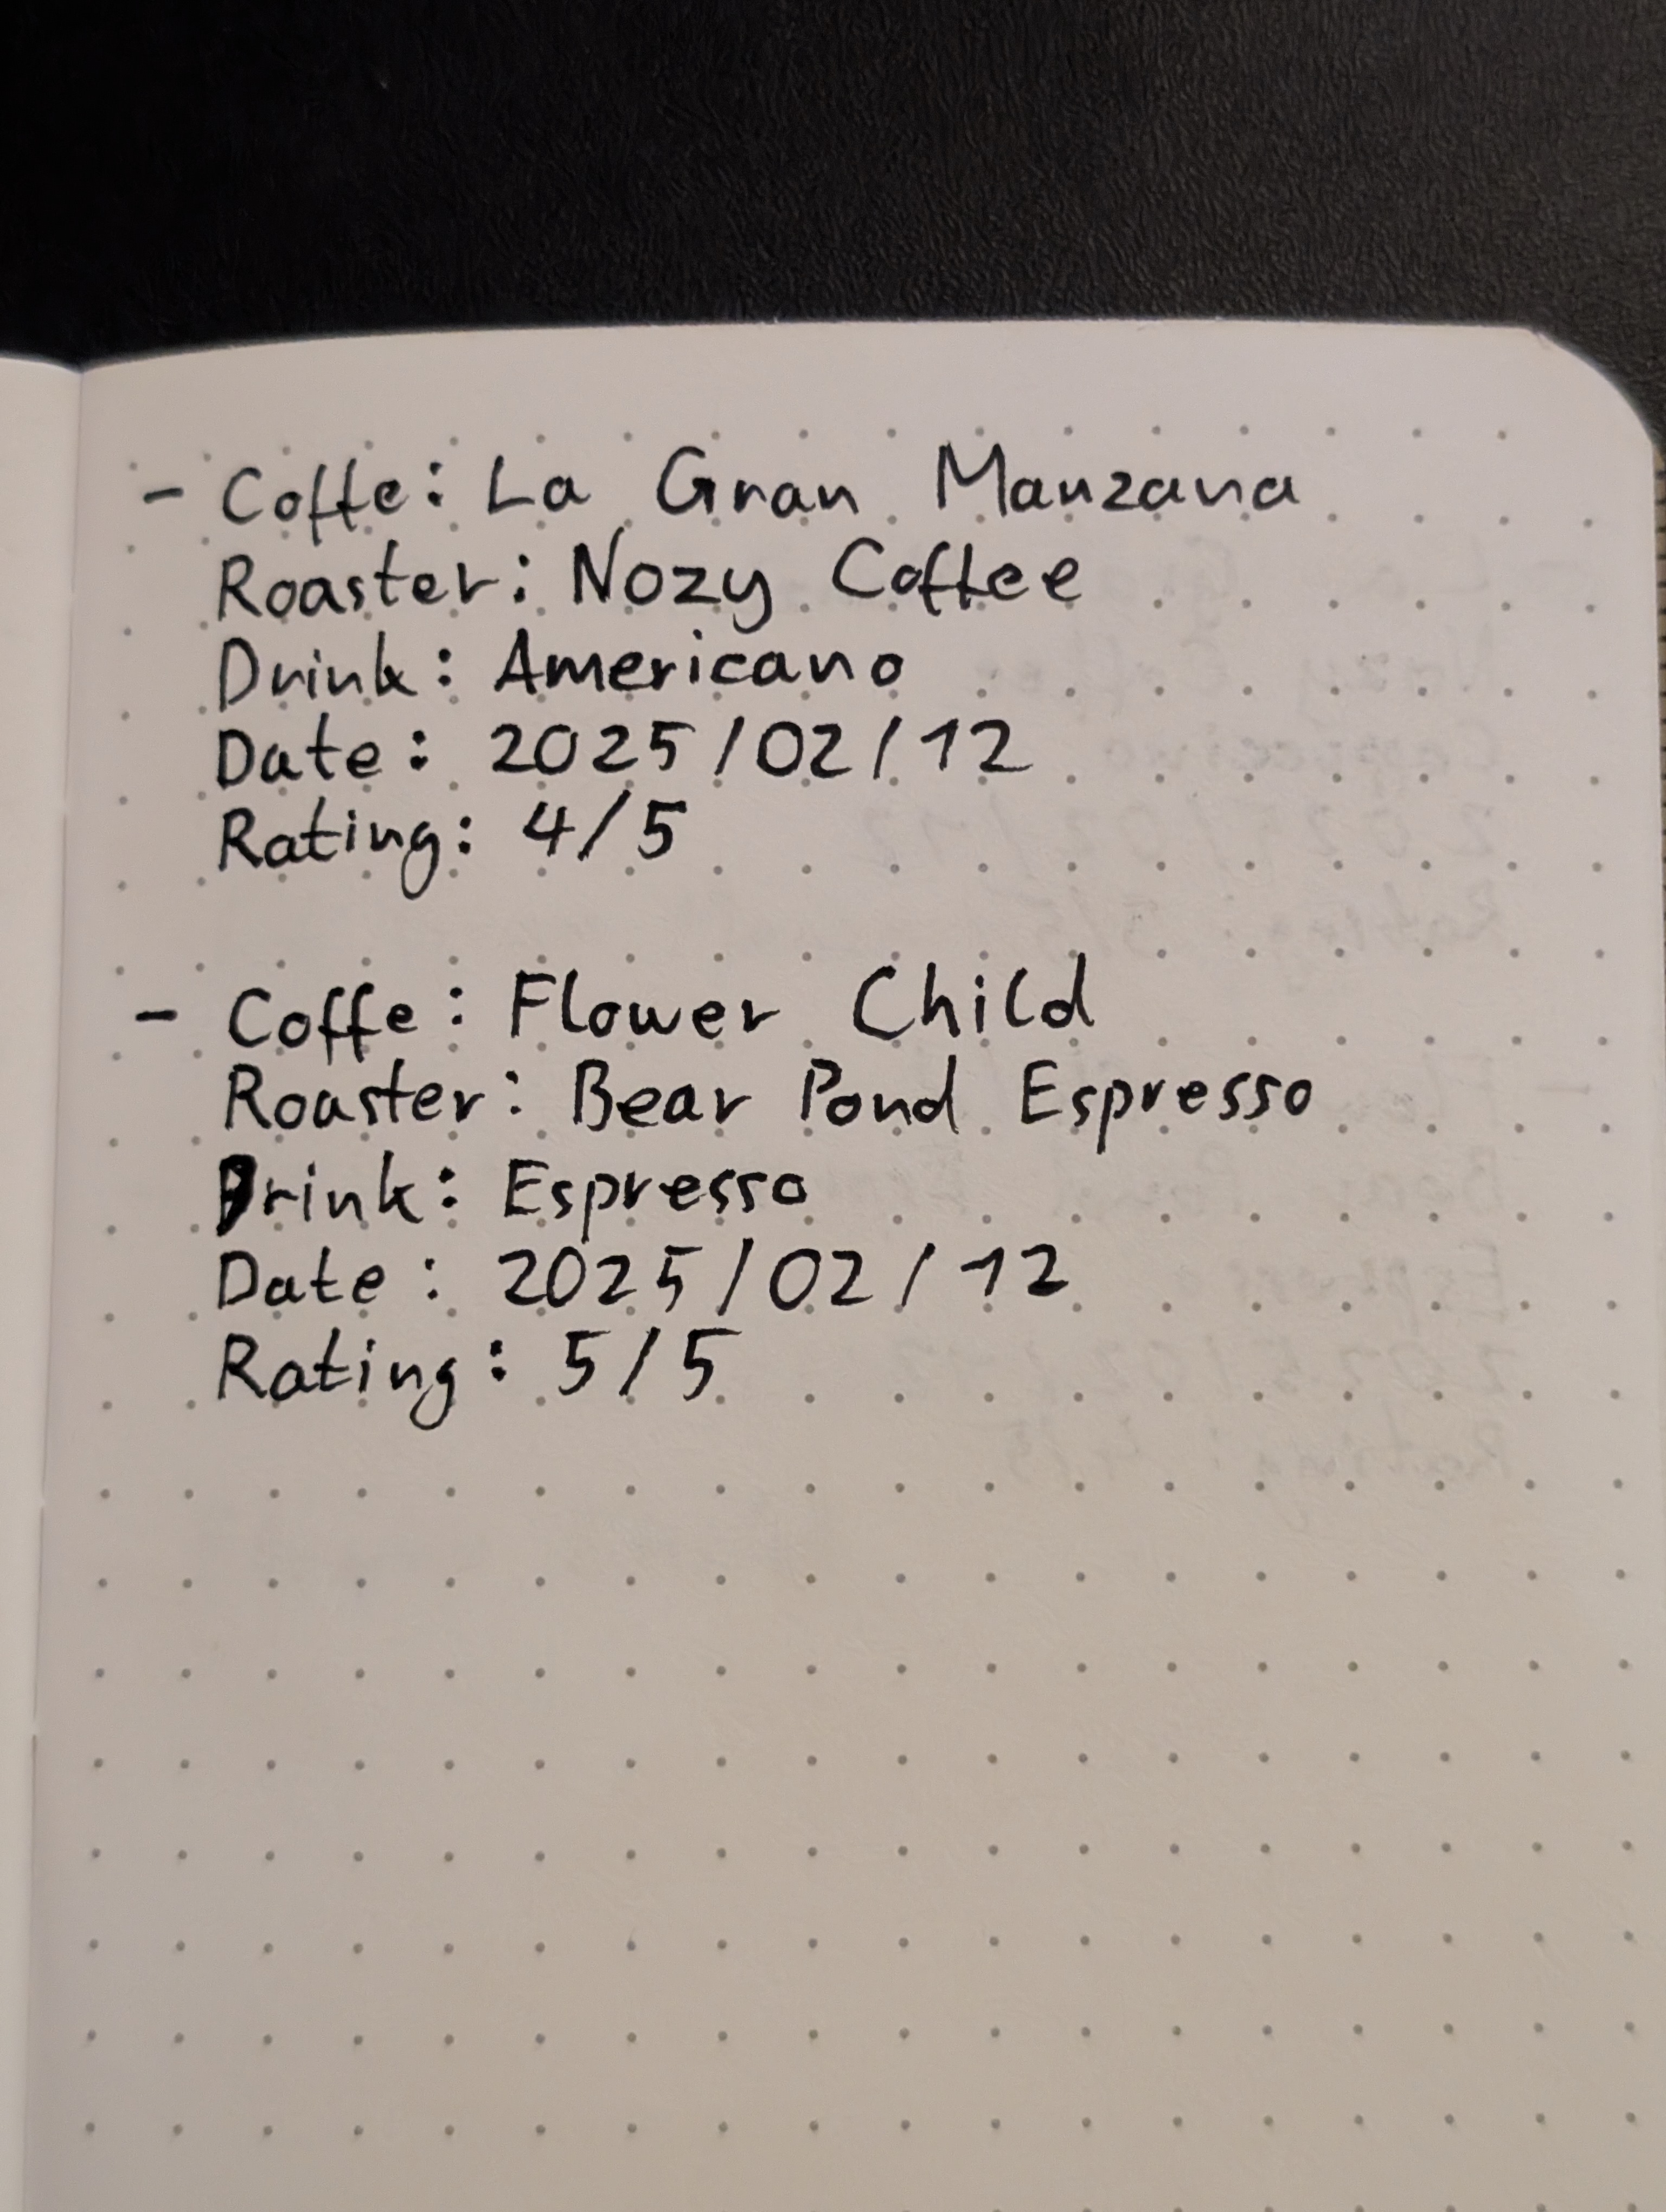 - Coffe: La Gran Manzana
Roaster: Nozy Coffee
Drink: Americano
Date: 2025/02/12
Rating: 4/5
- Coffe: Flower Child
Roaster: Bear Pond Espresso
Drink: Espresso
Date: 2025/02/12
Rating: 5/5